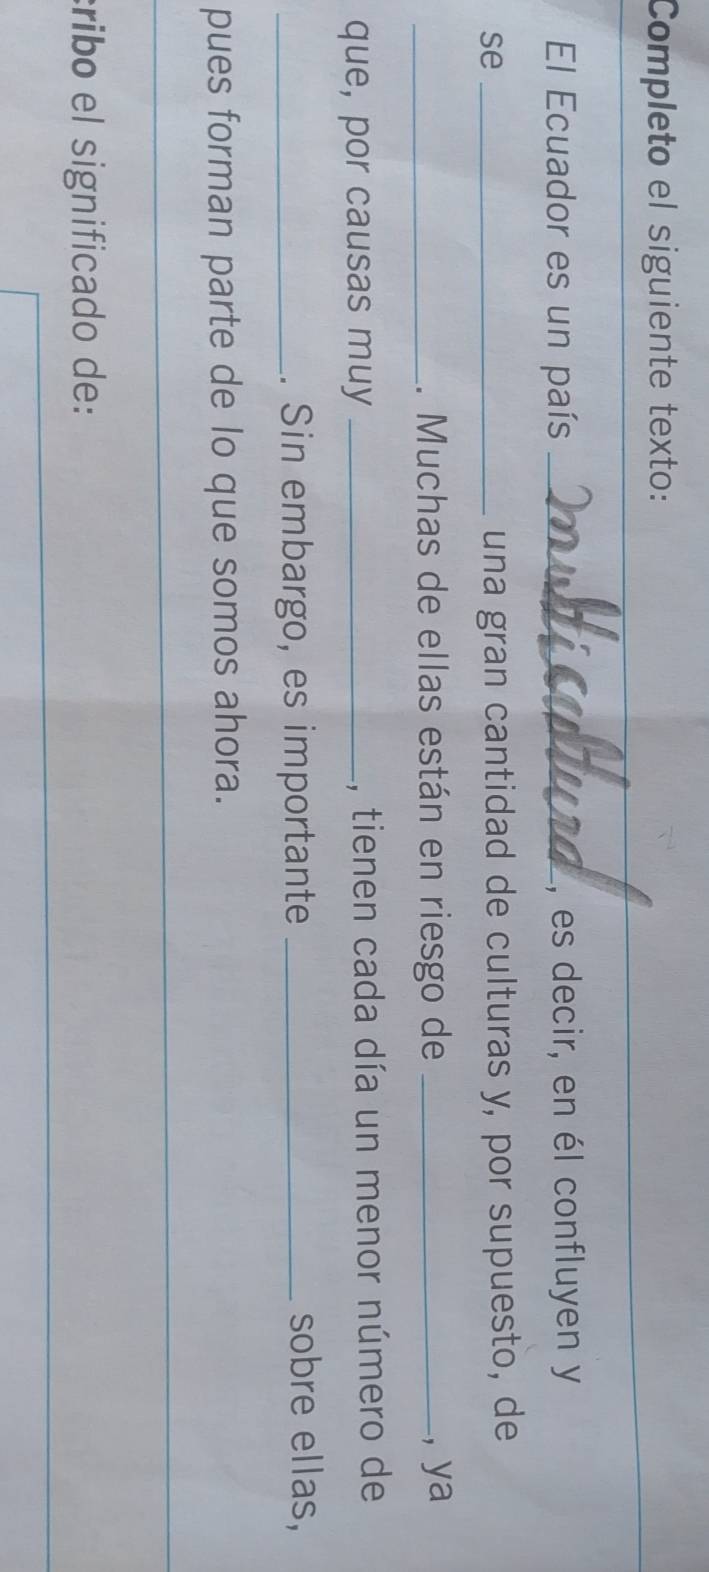 Completo el siguiente texto:
El Ecuador es un país multicultural, es decir, en él confluyen y
se ____________ una gran cantidad de culturas y, por supuesto, de
____________. Muchas de ellas están en riesgo de ____________, ya
que, por causas muy ____________, tienen cada día un menor número de
____________. Sin embargo, es importante ____________ sobre ellas,
pues forman parte de lo que somos ahora.
cribo el significado de: